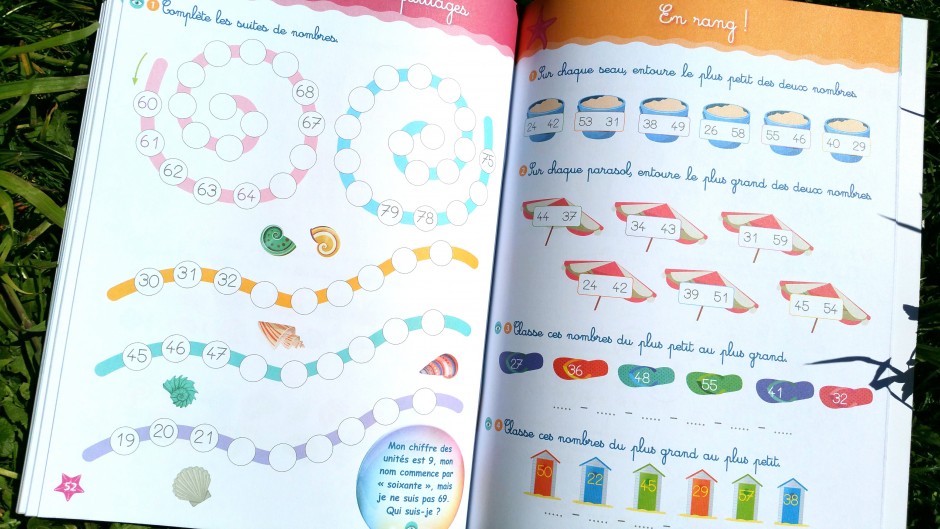 paysages
1 Complète les suites de nombres.
60
61
62
63
64
67
68
75
78
79
30 31 32
45 46 47
19 20 21
Mon chiffre des
unités est 9, mon
nom commence par
« soixante », mais
je ne suis pas 69.
Qui suis-je ?
52
En rang !
1 Sur chaque seau, entoure le plus petit des deux nombres.
24 42 53 31 38 49 26 58 55 46 40 29
2 Sur chaque parasol, entoure le plus grand des deux nombres.
44 37 34 43 31 59
24 42 39 51 45 54
3 Classe ces nombres du plus petit au plus grand.
27 36 48 55 41 32
..... – ..... – ..... – ..... – ..... – .....
4 Classe ces nombres du plus grand au plus petit.
50 22 45 29 57 38
..... – ..... – ..... – ..... – ..... – .....